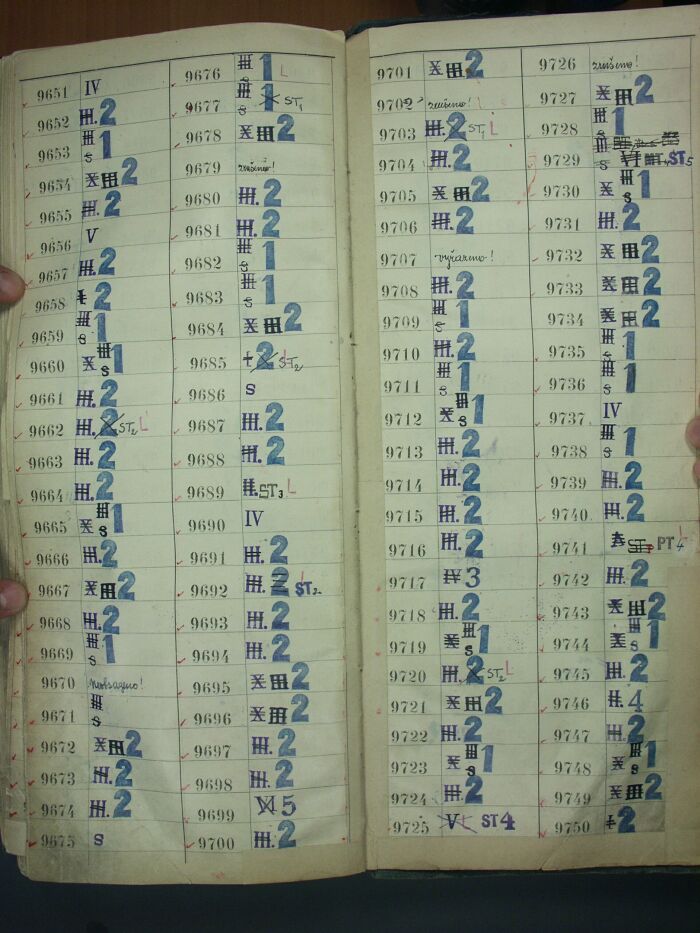 9651 IV
9652 III. 2
9653 III S 1
9654 X III 2
9655 III. 2
9656 V
9657 III. 2
9658 I 2
9659 III S 1
9660 X III S 1
9661 III. 2
9662 III. 2 ST2 L
9663 III. 2
9664 III. 2
9665 X III S 1
9666 III. 2
9667 X III 2
9668 III. 2
9669 III S 1
9670 neobsazeno!
9671 III S
9672 X III 2
9673 III. 2
9674 III. 2
9675 S
9676 III 1 L
9677 III 1 X ST1
9678 X III 2
9679 zrušeno!
9680 III. 2
9681 III. 2
9682 III S 1
9683 III S 1
9684 X III 2
9685 I 2 ST2 L
9686 S
9687 III. 2
9688 III. 2
9689 II. ST3 L
9690 IV
9691 III. 2
9692 III. 2 ST2 L
9693 III. 2
9694 III. 2
9695 X III 2
9696 X III 2
9697 III. 2
9698 III. 2
9699 VI 5
9700 III. 2
9701 X III 2
9702 zrušeno!
9703 III. 2 ST1 L
9704 III. 2
9705 X III 2
9706 III. 2
9707 vyřazeno!
9708 III. 2
9709 III S 1
9710 III. 2
9711 III S 1
9712 X III S 1
9713 III. 2
9714 III. 2
9715 III. 2
9716 III. 2
9717 IV 3
9718 III. 2
9719 X III S 1
9720 III. 2 ST2 L
9721 X III 2
9722 III. 2
9723 X III S 1
9724 III. 2
9725 V L ST4
9726 zrušeno!
9727 X III 2
9728 III S 1
9729 III VI ST5
9730 X III S 1
9731 III. 2
9732 X III 2
9733 X III 2
9734 X III 2
9735 III S 1
9736 III S 1
9737 IV
9738 III S 1
9739 III. 2
9740 III. 2
9741 ST PT4 L
9742 III. 2
9743 X III 2
9744 X III S 1
9745 III. 2
9746 II. 4
9747 III. 2
9748 X III S 1
9749 X III 2
9750 I 2